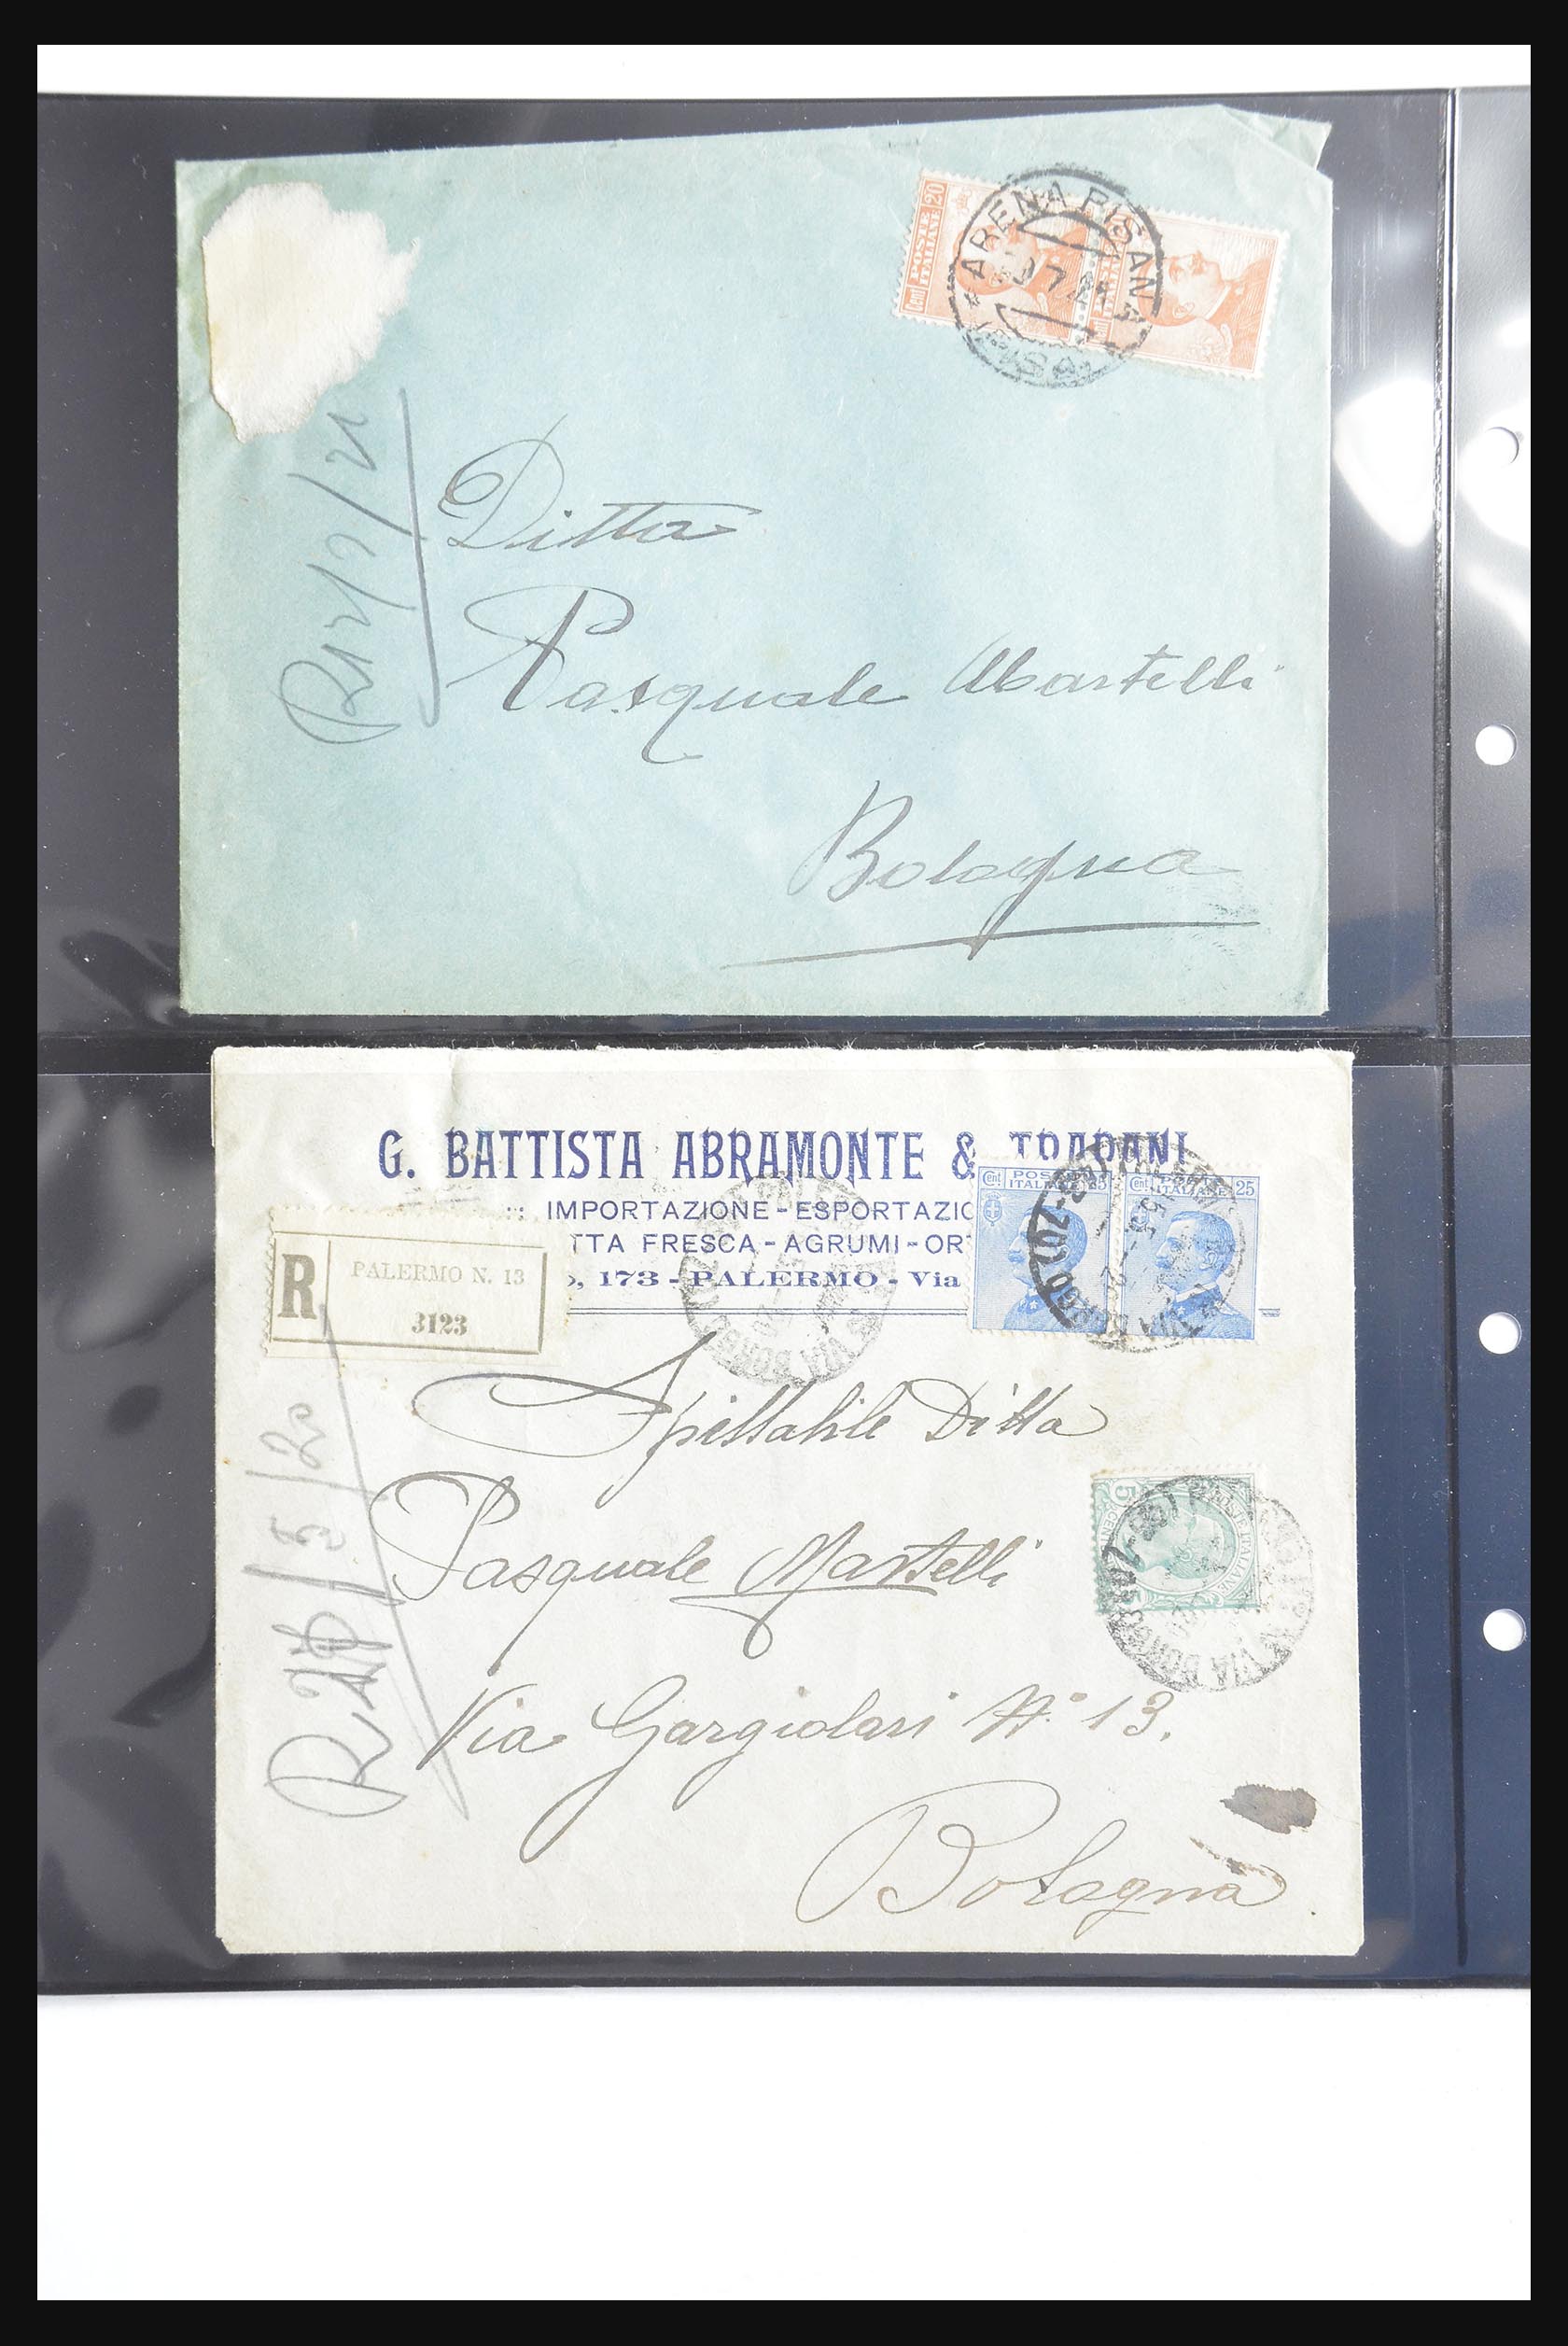 Cent POSTE ITALIANE 20
ARENA PISANA
(PISA)
R 12/7/21
Ditta
Pasquale Martelli
Bologna
G. BATTISTA ABRAMONTE & TRAPANI
IMPORTAZIONE - ESPORTAZIO
TTA FRESCA - AGRUMI - OR
173 - PALERMO - Via
R
PALERMO N. 13
3123
Cent POSTE ITALIANE 25
Cent POSTE ITALIANE 25
Spettabile Ditta
5 CENT
POSTE ITALIANE
Pasquale Martelli
/5/20
Via Gargiolari N° 13.
Bologna